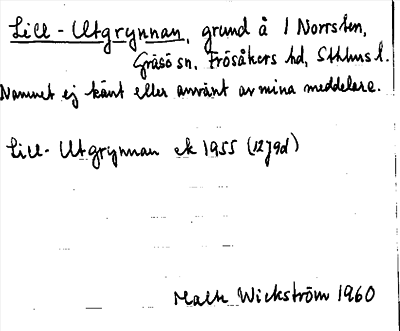 Lill-Utgrynnan, grund å 1 Norrsten,
Gräsö sn, Frösåkers hd, Sthlms l.
Namnet ej känt eller använt av mina meddelare.
Lill-Utgrynnan ek 1955 (12J9d)
Wickström 1960